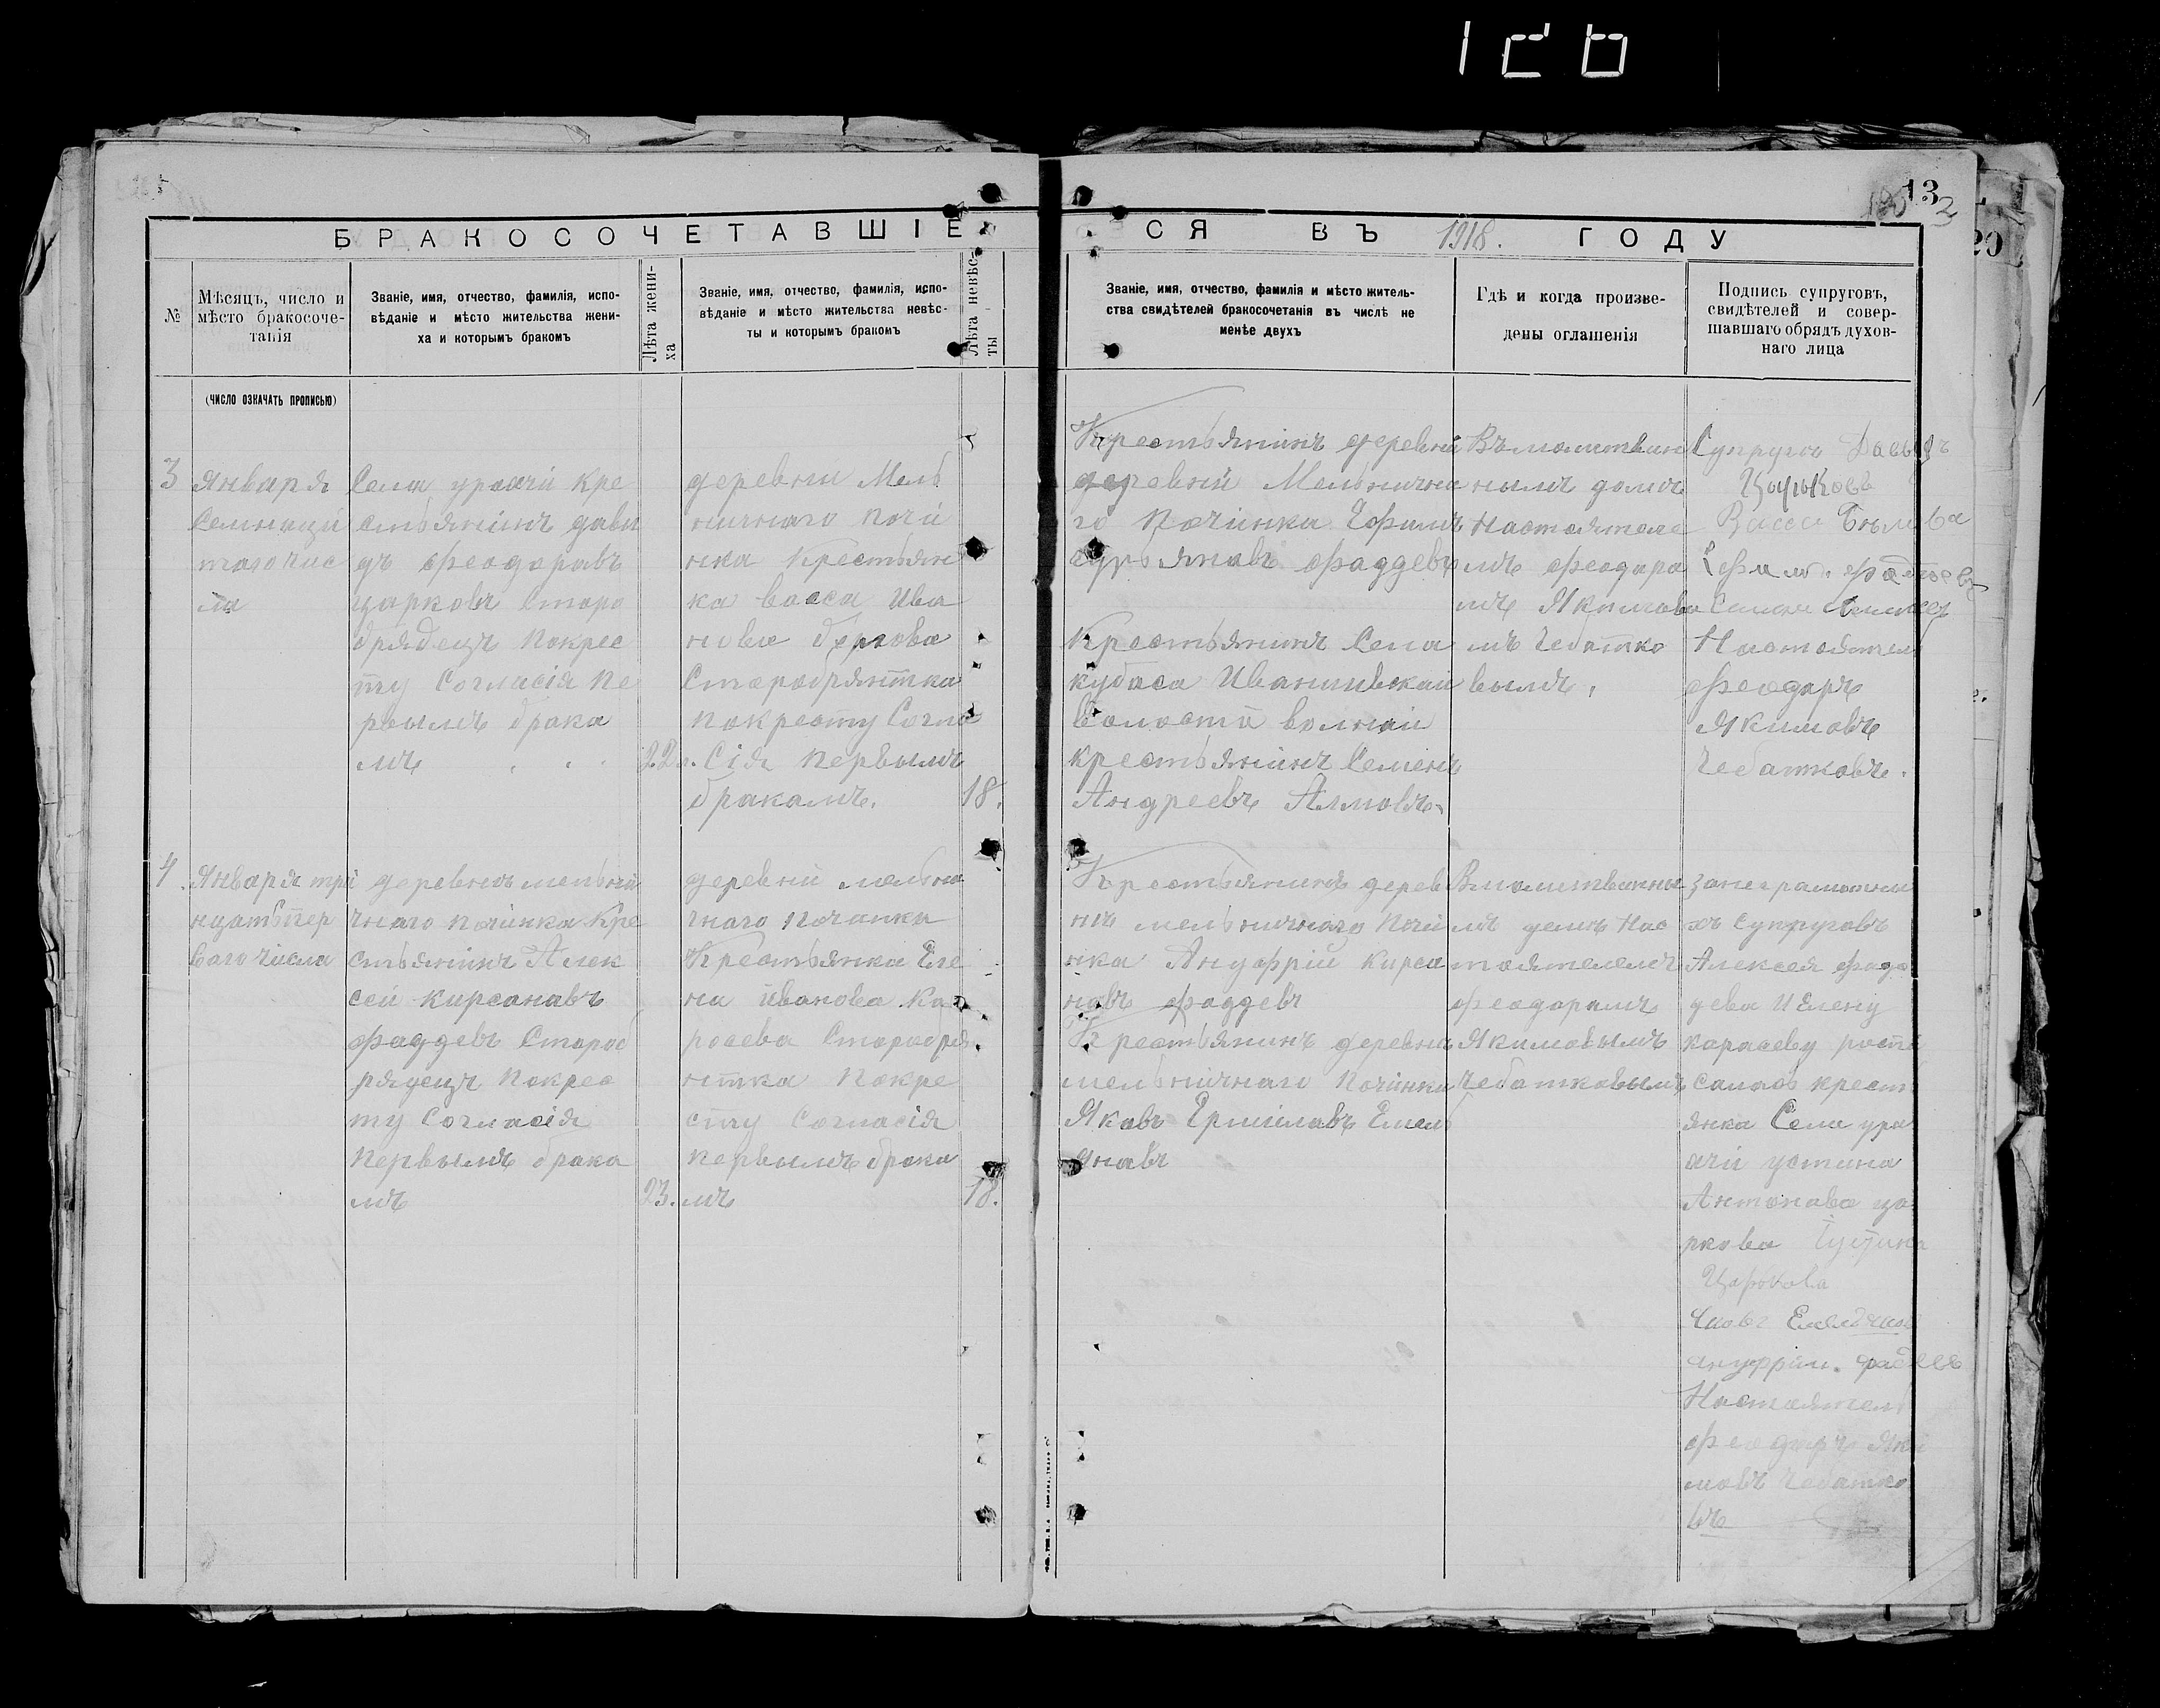 132
БРАКОСОЧЕТАВШІЕСЯ ВЪ 1918. ГОДУ
№
Мѣсяцъ, число и
мѣсто бракосоче-
танія
(ЧИСЛО ОЗНАЧАТЬ ПРОПИСЬЮ)
Званіе, имя, отчество, фамилія, испо-
вѣданіе и мѣсто жительства жени-
ха и которымъ бракомъ
Лѣта жени-
ха
Званіе, имя, отчество, фамилія, испо-
вѣданіе и мѣсто жительства невѣс-
ты и которымъ бракомъ
Лѣта невѣс-
ты
Званіе, имя, отчество, фамилія и мѣсто житель-
ства свидѣтелей бракосочетанія въ числѣ не
менѣе двухъ
Гдѣ и когда произве-
дены оглашенія
Подпись супруговъ,
свидѣтелей и совер-
шавшаго обрядъ духов-
наго лица
3
Января
Семнацы
таго чис
ла
Села уроачи кре
стьянинъ дави
дъ феодоравъ
царковъ Старо
брядецъ покрес
ту Согласія пе
рвымъ брака
мъ
22.
деревни Мель
ничнаго почи
нка Крестьян
ка васса Ива
нова
Старобрятка
покресту Согла
Сія первымъ
бракамъ.
18.
Крестьянинъ деревни
деревни Мельнична
го Починка Ефимъ
фаддевъ
Крестьянинъ Села
кубаса Иванишвскай
Воласти волнай
крестьянинъ Семенъ
Андреевъ
Въмалитвин
нымъ домъ
Настоятеле
мъ феодара
мъ Якимава
мъ Чебатко
вымъ,
Супругъ Давыдъ
Царьковъ
Васса
Настоятель
феодаръ
Якимовъ
Чебатковъ.
4.
Января три
нцатьпер
ваго числа
деревни мельни
чнаго починка Кре
стьянинъ Алек
сей кирсанавъ
фаддевъ Староб
рядецъ покрес
ту Согласія
первымъ брака
мъ
23.
деревни мельни
чнаго починка
Крестьянка Еле
на иванова Ка
расева Старобря
нтка покре
сту Согласія
первымъ брака
мъ
18.
Крестьянинъ дерев
ни мельничнаго почи
нка Ануфрій Кирса
навъ фаддевъ
Крестьянинъ деревни
мельничнаго починка
Якавъ Ермилавъ Емель
янавъ
Вмалитвинны
мъ домъ Нас
тоятелемъ
феодарамъ
Якимовымъ
Чебатковымъ
занеграмотны
хъ Супруговъ
Алексея фад
дева И Елену
карасеву роспи
салась крест
янка Села уро
ачи устина
Антонава ца
ркова
Царькова
Ануфрии. фадеевъ
Настаятель
феодаръ Яки
мовъ Чебатко
въ